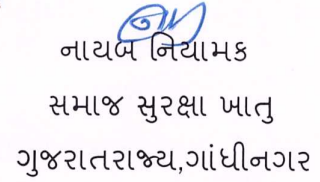 નાયબ નિયામક
સમાજ સુરક્ષા ખાતુ
ગુજરાતરાજ્ય,ગાંધીનગર